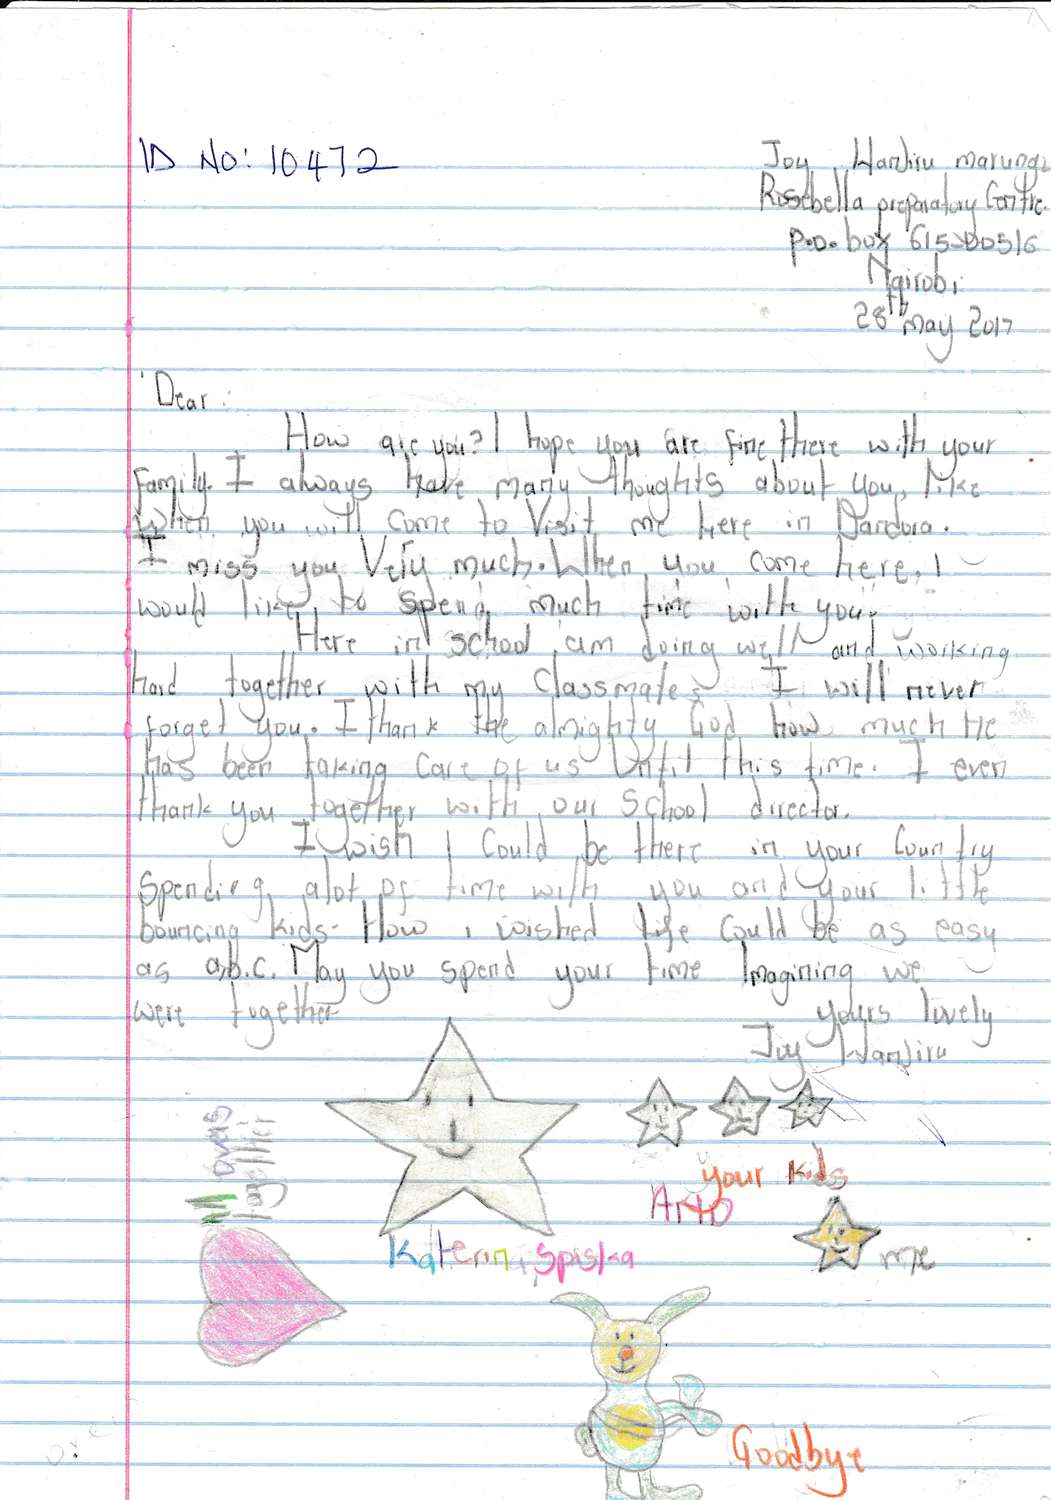 ID No: 10472
Joy Wanjiru marungu
Rossebella preparatory Centre.
P.O. box 615-00516
Nairobi
28th may 2017
Dear:
How are you? I hope you are fine there with your
family. I always have many thoughts about you, like
When you will come to Visit me here in Dandora.
I miss you Very much. When you come here, I
would like to spend much time with you.
Here in school am doing well and working
hard together with my classmates I will never
forget you. I thank the almighty God how much He
has been taking care of us Until this time. I even
thank you together with our school director.
I wish I Could be there in your Country
Spending alot of time with you and your little
bouncing kids. How i wished life Could be as easy
as a.b.c. May you spend your time Imagining we
were together
yours lovely
Joy Wanjiru
All
together
your kids
Arto
Katerina Spiska
me
Goodbye